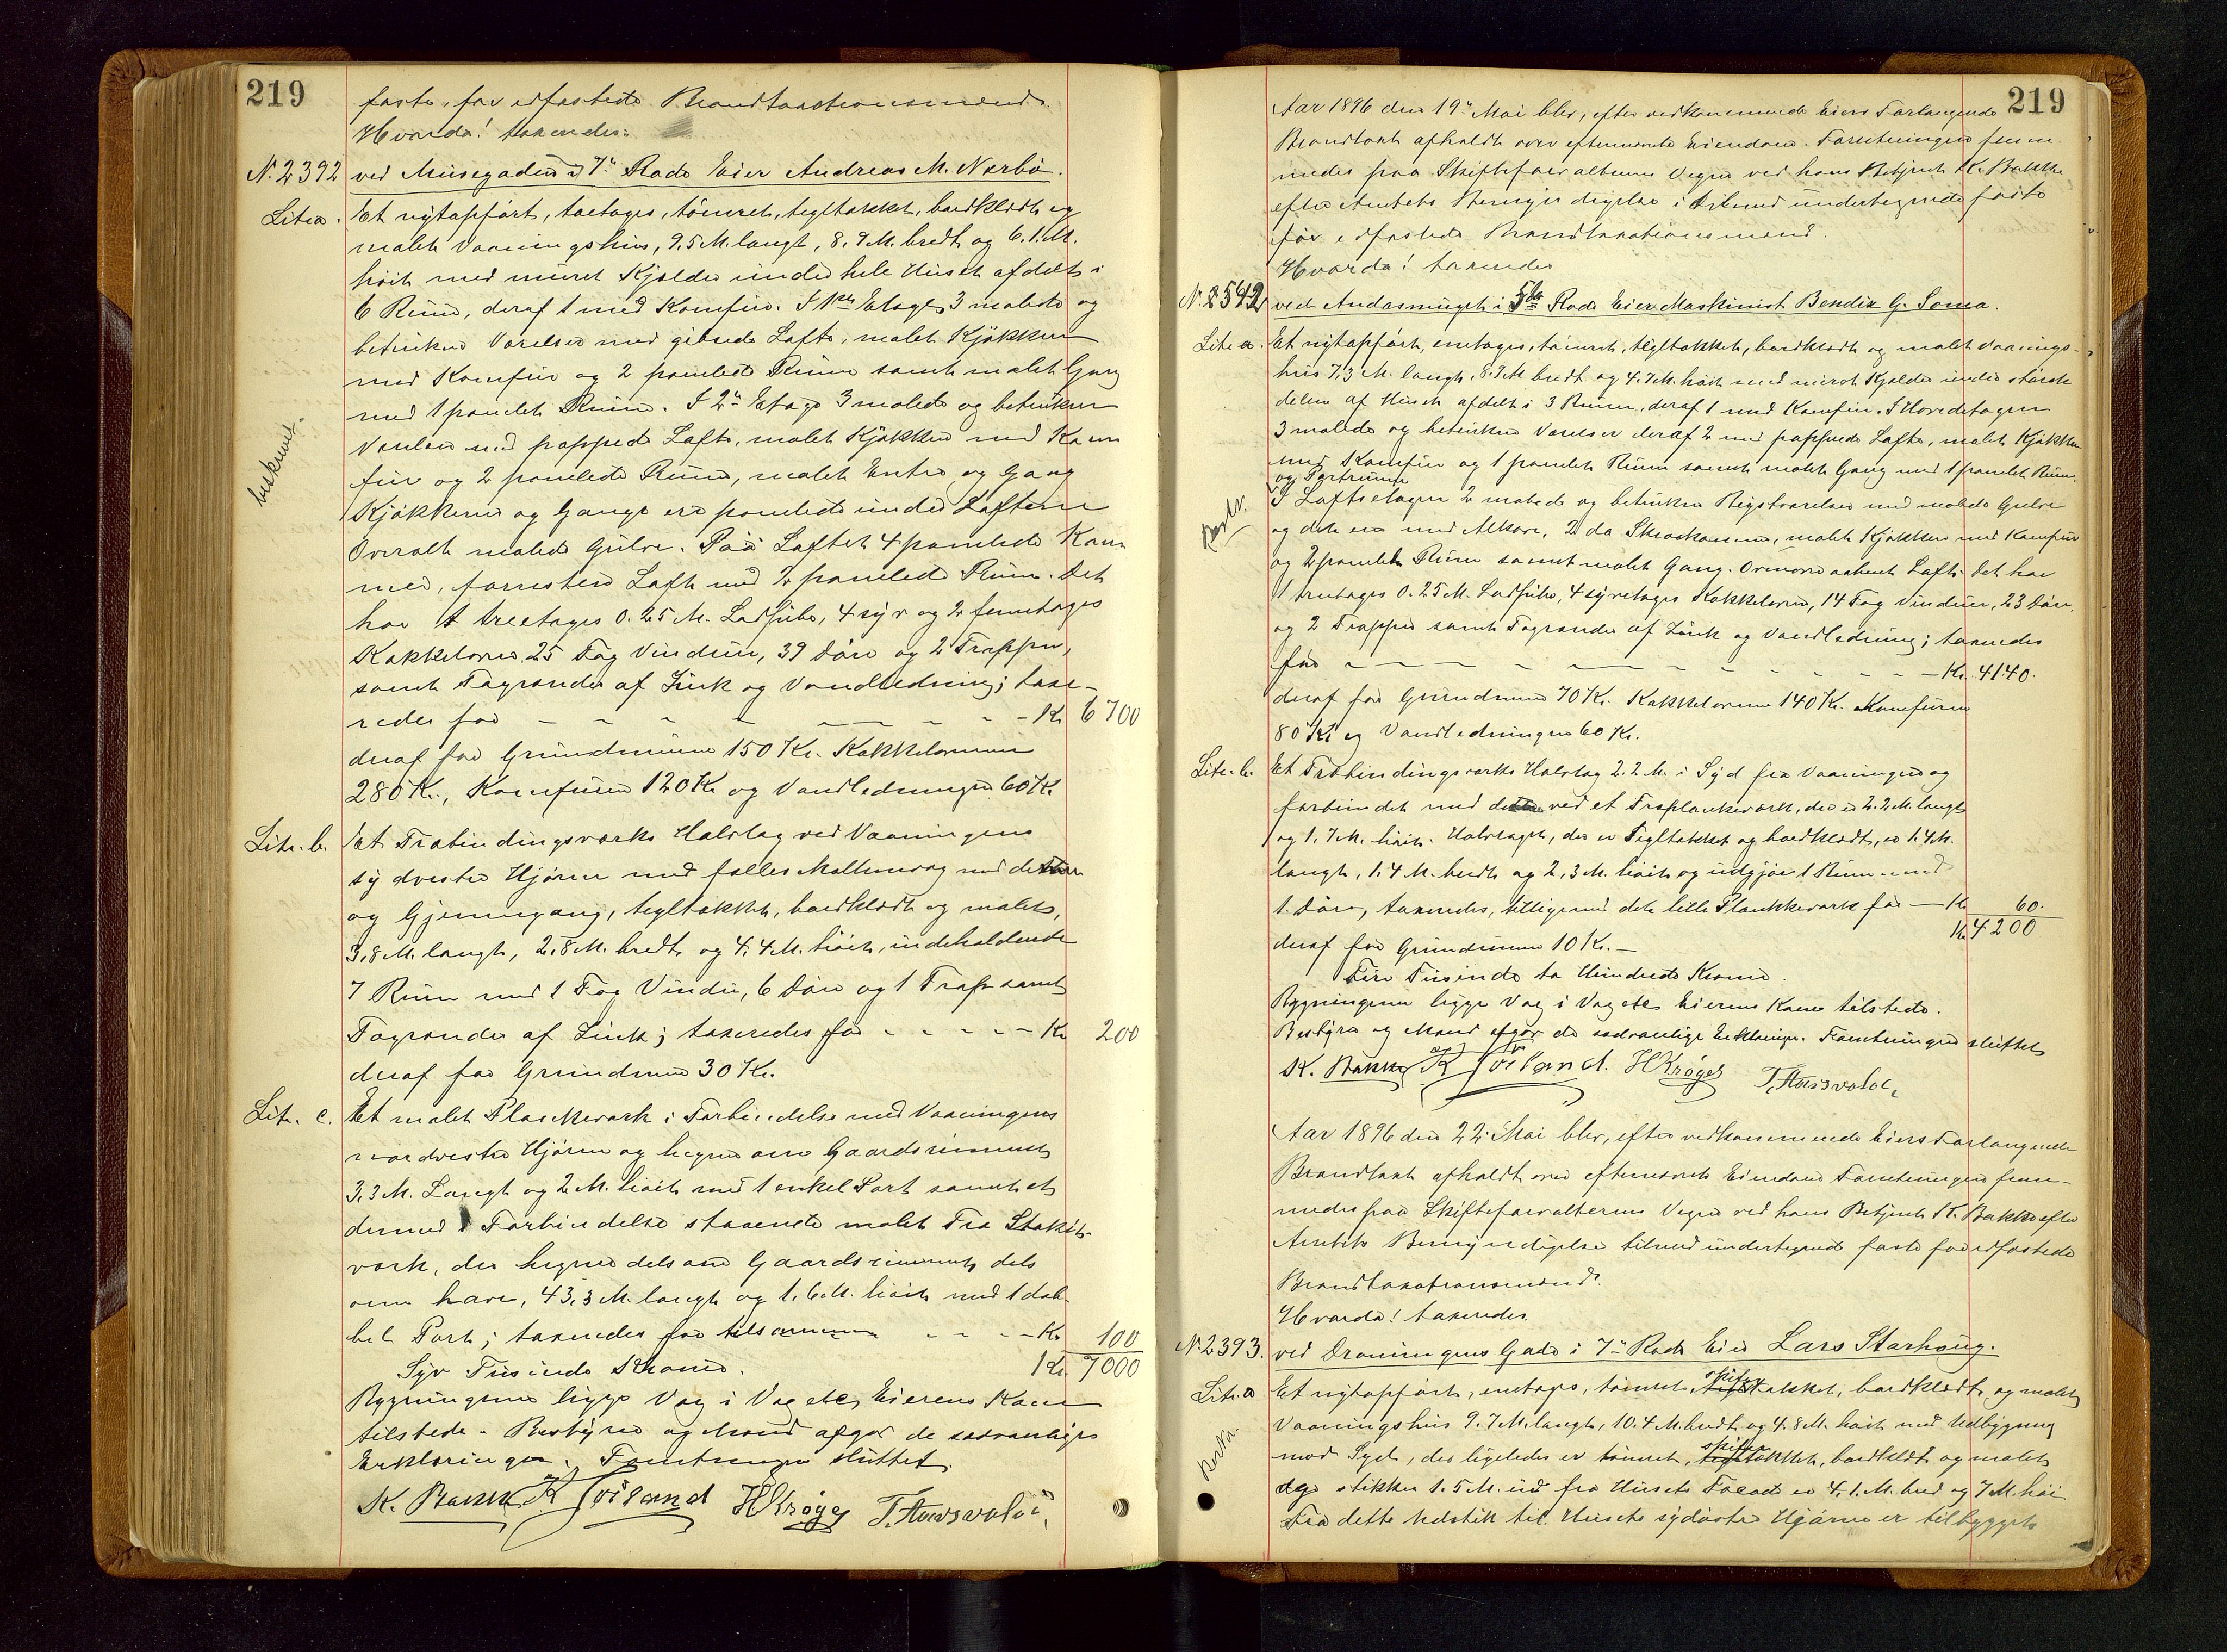 219
faste, før edfæstede Brandtaxtionsmænd.
Hvorda! taxeredes:
N. 2392 ved Musegaden i 7de Rode Eier Andreas M. Nærbø.
Litr a. Et nytopført, toetages, tømret, tegltækket, bordklædt og
malet Vaaningshus, 9.5 M. langt, 8.9 M. bredt og 6.1. M.
høit med muret Kjælder under hele Huset afdelt i
6 Rum, deraf 1 med Komfur. I 1ste Etage 3 malede og
betrukne Værelser med gibsede Lofte, malet Kjøkken
med Komfur og 2 panelede Rum samt malet Gang
med 1 panelet Rum. I 2den Etage 3 malede og betrukne
Værelser med pappede Lofte, malet Kjøkken med Kom
fur og 2 panelede Rum, malet Entre og Gang
Kjøkkener og Gange ere panelede under Loftene
Overalt malede Gulve. Paa Loftet 4 panelede Kam
mer, forresten Loft med 2 panelede Rum. Det
har 1 treetages 0.25 M. Ladpibe, 4 syv og 2 femetages
Kakkelovne, 25 Fag Vinduer, 39 Døre og 2 Trapper,
samt Tagrender af Zink og Vandledning; taxe-
redes for - - - - - Kr 6700
deraf for Grundmuren 150 Kr. Kakkelovnene
280 Kr., Komfuren 120 Kr og Vandledningen 60 Kr
beskrevet.
Litr. b. Et Træbindingsværks Halvtag ved Vaaningens
sydvestre Hjørne med fælles Mellemvæg med denne
og Gjennemgang, tegltækket, bordklædt og malet,
3,8 M. langt, 2.8 M. bredt og 4.4 M. høit, indeholdende
7 Rum med 1 Fag Vindu, 6 Døre og 1 Trappe samt
Tagrender af Zink; taxeredes for - - - - Kr 200
deraf for Grundmuren 30 Kr.
Litr. c. Et malet Plankeværk i Forbindelse med Vaaningens
nordvestre Hjørne og hegner om Gaardsrummet
3.3 M. Langt og 2 M. høit med 1 enkel Port samt et
dermed i Forbindelse staaende malet Træ Stakit-
værk, der hegner dels om Gaardsrummet dels
om have, 43,3 M. langt og 1.6 M. høit med 1 dob
belt Port; taxeredes for tilsammen - - - Kr 100
Syv Tusinde Kroner. Kr. 7000
Bygningerne ligge Væg i Væg etc, Eierens Kone
tilstede. Bestyrer og Mænd afgav de sædvanlige
Erklæringer. Forretningen sluttet.
K. Bakke R Joiland HKrøger T. Haasvold
219
Aar 1896 den 19de Mai blev, efter vedkommende Eiers Forlangende
Brandtaxt afholdt over eftermældte Eiendom. Forretningen frem
medes paa Skifteforvalterens Vegne ved hans Betjent K. Bakke
efter Amtets Bemyndigelse i tilmed undertegnede faste
før edfæstede Brandtaxationsmænd.
Hvorda! taxeredes
N. 2542 ved Andasmuget i 5te Rode Eier Maskinist Bendix G. Soma.
Litr a. Et nytopført, enetages, tømret, tegltækket, bordklædt og malet Vaanings-
hus 7,3 M. langt, 8.7 M bredt og 4.7 M. høit med muret Kjælder under største
delen af Huset afdelt i 3 Rum, deraf 1 med Komfur. I Hovedetagen
3 malede og betrukne Værelser deraf 2 med pappede Lofte, malet Kjøkken
med Komfur og 1 panelet Rum samt malet Gang med 1 panelet Rum.
og Portrum
I Loftsetagen 2 malede og betrukne Kvistværelser med malede Gulve
og det ene med Alkove, 2 do Skraakamre, malet Kjøkken med Komfur
og 2 panelede Rum samt malet Gang. Ovenover aabent Loft. Det har
1 treetages 0.25 M. Ladpibe, 4 syvetages Kakkelovne, 14 Fag Vinduer, 23 Døre,
og 2 Trapper samt Tagrender af Zink og Vandledning; taxeredes
for - - - - - Kr. 4140.
deraf for Grundmuren 70 Kr. Kakkelovnene 140 Kr. Komfurene
80 Kr og Vandledningen 60 Kr.
Litr. b. Et Træbindingsværks Halvtag 2.2 M. i Syd fra Vaaningen og
forbundet med denne ved et Træplankeværk, der er 2.2 M. langt
og 1.7 M. høit. Halvtaget, der er Tegltækket og bordklædt, er 1.4 M.
langt, 1.4 M. bredt og 2,3 M. høit og udgjør 1 Rum med
1. Dør, taxeredes, tilligemed dette lille Plankeværk for - Kr 60.
Kr 4200
deraf for Grundmuren 10 Kr. -
Fire Tusinde to Hundrede Kroner.
Bygningerne ligge Væg i Væg etc Eierens Kone tilstede.
Bestyrer og Mænd afgav de sædvanlige Erklæringer. Forretningen sluttet
K. Bakke R Joiland. HKrøger T. Haasvold
Aar 1896 den 22. Mai blev, efter vedkommende Eiers Forlangende
Brandtaxt afholdt over eftermældte Eiendom Forretningen frem-
medes paa Skifteforvalterens Vegne ved hans Betjent K. Bakke efter
Amtets Bemyndigelse tilmed undertegnede faste før edfæstede
Brandtaxationsmænd.
Hvorda! taxeredes
N. 2393. ved Dronningens Gade i 7de Rode Eier Lars Starhoug.
Litr. a Et nytopført, enetages, tømret, skifertækket, bordklædt og malet
Vaaningshus 9.7 M. langt, 10.4 M. bredt og 4.8 M. høit med Udbygning
mod Syd, der ligeledes er tømret, skifertækket, bordklædt og malet
og stikker 1.5 M. ud fra Husets Facade er 4.1. M. bred og 7 M. høi
Fra dette Udstik til Husets sydøstre Hjørne er tilbygget